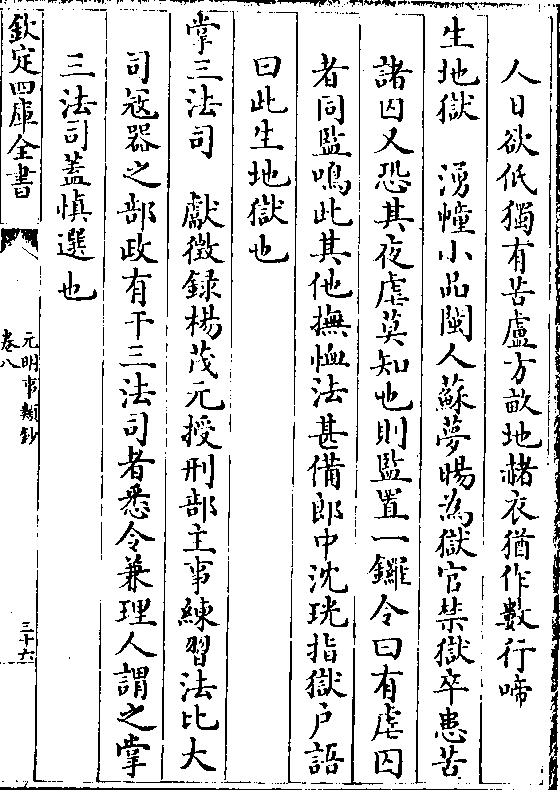 人日欲低獨有苦盧方畝地赭衣猶作數行啼
生地獄　湧幢小品閩人蘇夢暘為獄官禁獄卒患苦
諸囚又恐其夜虐莫知也則監置一鑼令曰有虐囚
者同監鳴此其他撫恤法甚備郎中沈珖指獄户語
曰此生地獄也
掌三法司　獻徵録楊茂元授刑部主事練習法比大
司冦器之部政有干三法司者悉令兼理人謂之掌
三法司蓋慎選也
欽定四庫全書
元明事類鈔
卷八
三十六